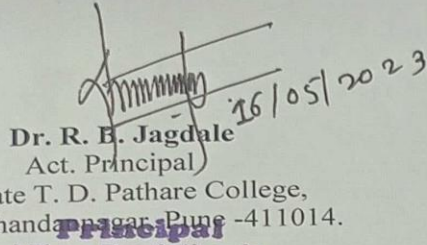 16/05/2023
Dr. R. B. Jagdale
Act. Principal
ate T. D. Pathare College,
handannagar, Pune -411014.
Principal